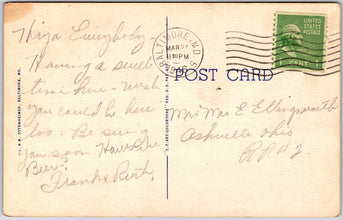 Hiya Everybody-
Having a swell
time here - wish
you could be here
too. Be seeing
you soon. Have
Beer?
Frank & Ruth.
I. & M. OTTENHEIMER, BALTIMORE, MD.
BALTIMORE, MD.
MAR 27
PM
UNITED
STATES
POSTAGE
1 CENT 1
POST CARD
Mr & Mrs E
Ashville Ohio
R R # 2